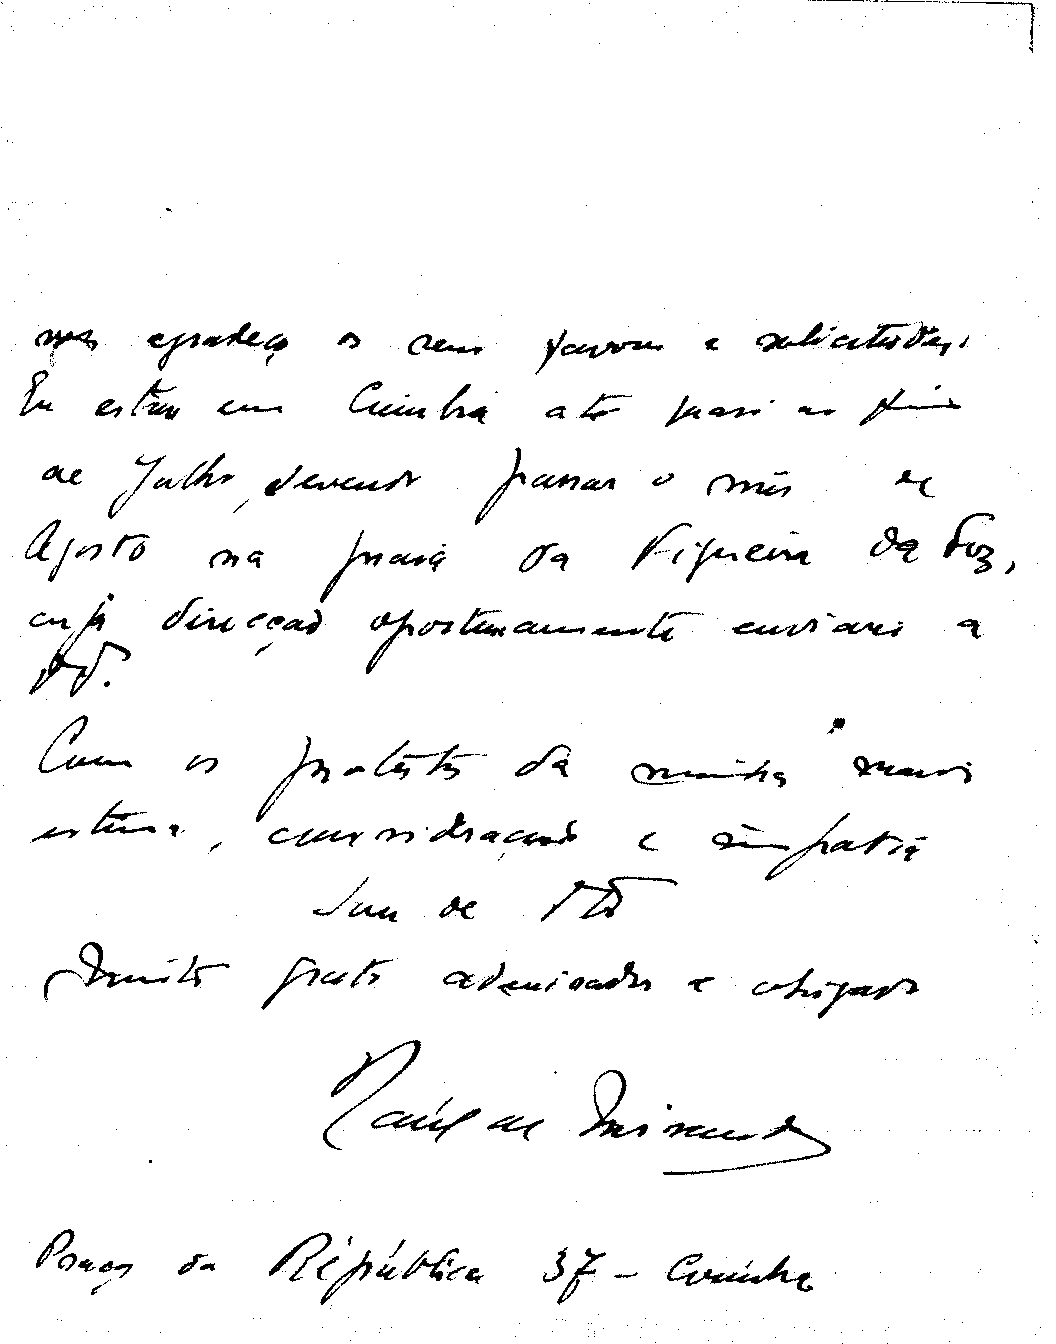 mais agradeço os seus favores e solicitudes.
Eu estou em Coimbra até quasi ao fim
de Julho, devendo passar o mês de
Agosto na praia da Figueira da Foz,
cuja direcção oportunamente enviarei a
V. 
Com os protestos da minha maior
estima, consideração e simpatia
Sou de V.
Muito grato admirador e obrigado
Raúl de Miranda
Praça da República 37 - Coimbra